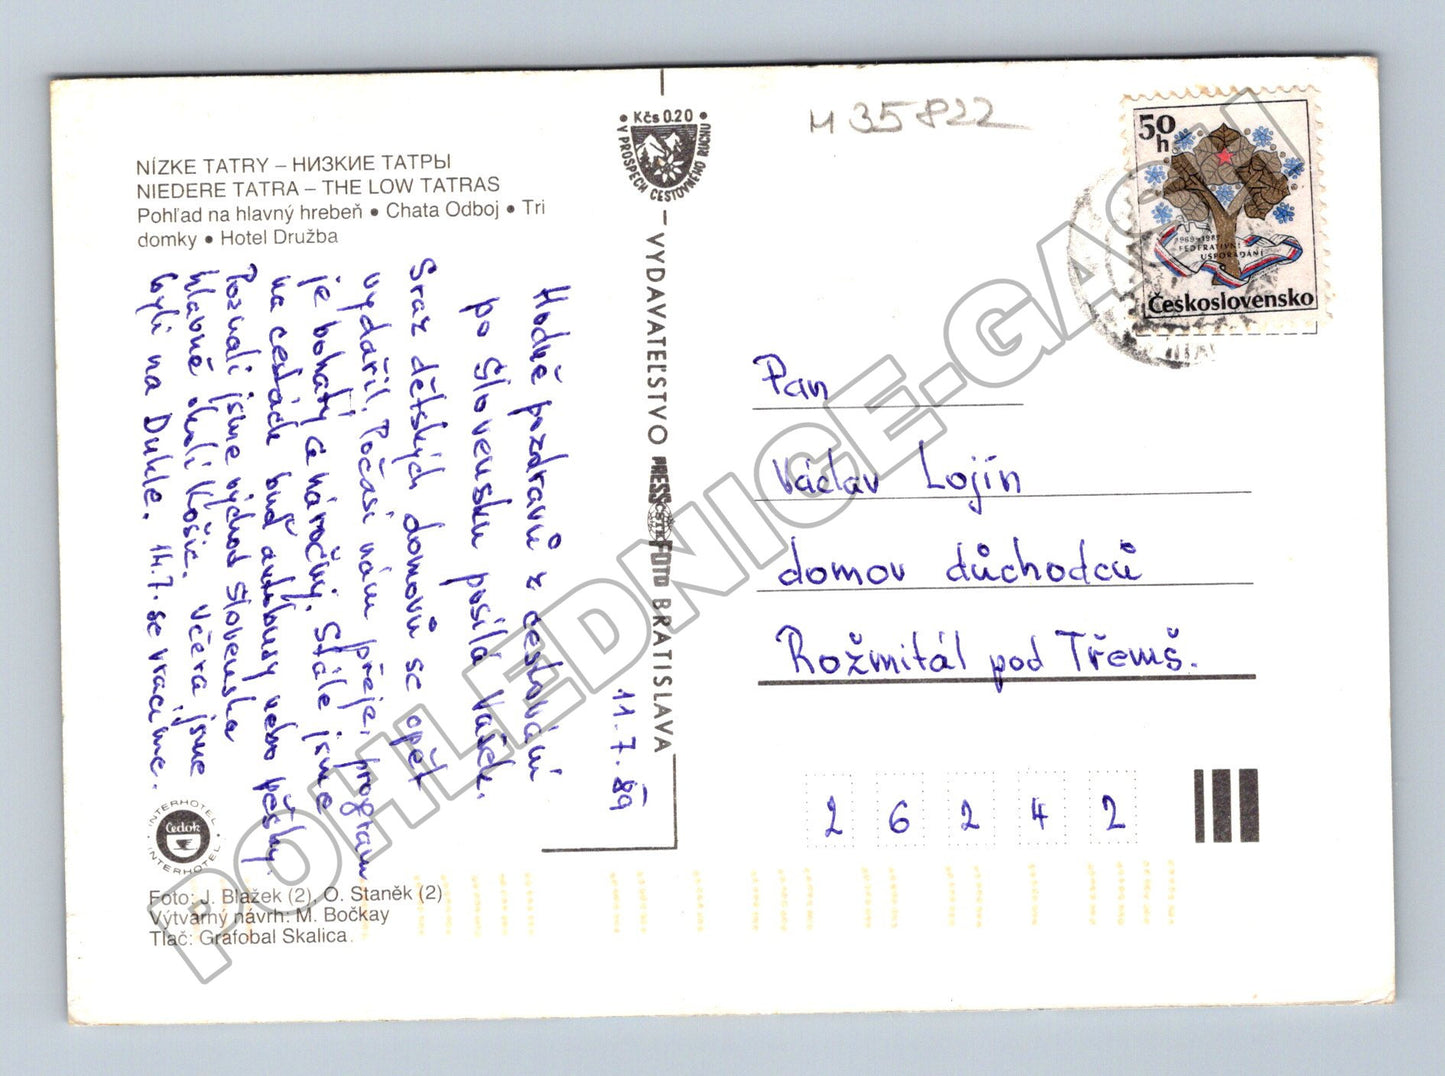 NÍZKE TATRY – НИЗКИЕ ТАТРЫ
NIEDERE TATRA – THE LOW TATRAS
Pohľad na hlavný hrebeň • Chata Odboj • Tri
domky • Hotel Družba
• Kčs 0.20 •
V PROSPECH CESTOVNÉHO RUCHU
VYDAVATEĽSTVO PRESSFOTO BRATISLAVA
ČSTK
M 35822
50 h
1969–1989
FEDERATIVNÍ
USPOŘÁDÁNÍ
Československo
11.7.89
Hodně pozdravů z cestování
po Slovensku posílá Vašek.
Sraz dětských domovů se opět
vydařil. Počasí nám přeje, program
je bohatý a náročný. Stále jsme
na cestách buď autobusy nebo pěšky.
Poznali jsme východ Slovenska
hlavně okolí Košic. Včera jsme
byli na Dukle. 14.7. se vracíme.
Pan
Václav Lojín
domov důchodců
Rožmitál pod Třemš.
2 6 2 4 2
INTERHOTEL
Čedok
INTERHOTEL
Foto: J. Blažek (2), O. Staněk (2)
Výtvarný návrh: M. Bočkay
Tlač: Grafobal Skalica
POHLEDNICE-GASH